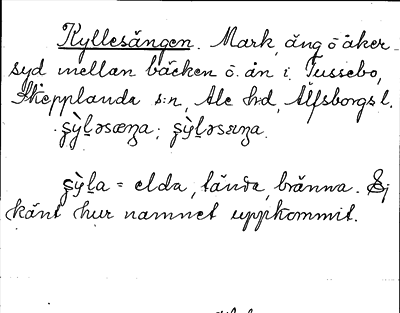 Kyllesängen. Mark, äng o åker
syd mellan bäcken o. ån i Tussebo,
Skepplanda s:n, Ale hd, Älfsborgs l.
ʂỳḻəsæŋa; ʂỳḻəsɛŋa.
ʂỳḻa = elda, tända, bränna. Ej
känt hur namnet uppkommit.